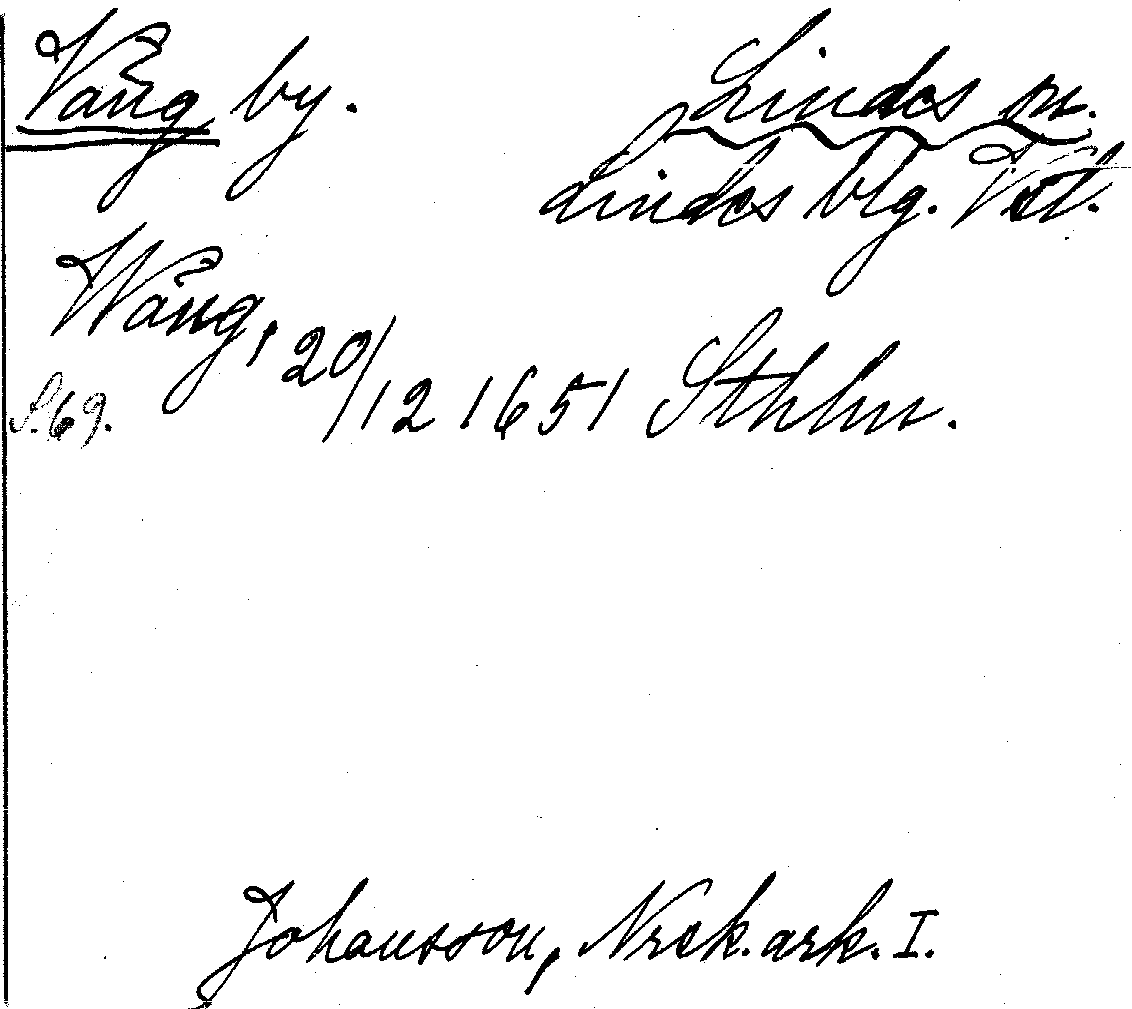 Vång by.
Lindes sn.
Lindes blg. Vstl.
Wång, 20/12 1651 Sthlm.
S. 69.
Johansson, Nrek. ark. I.